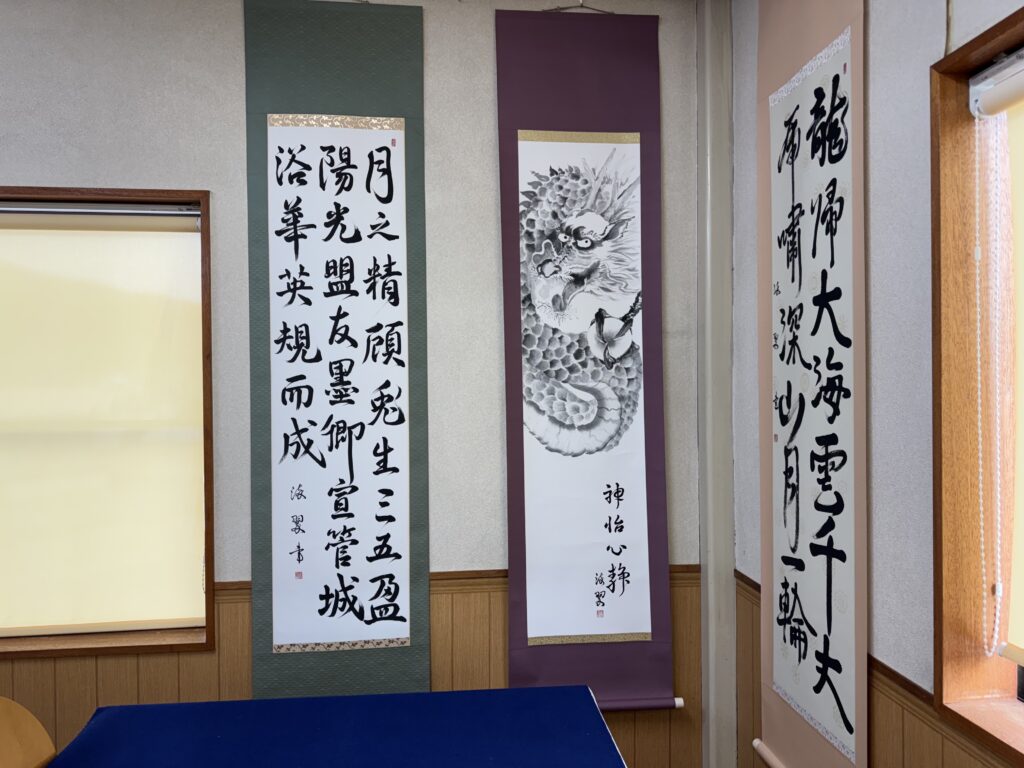 月之精顧兎生三五盈
陽光盟友墨卿宣管城
浴華英規而成
神怡心静
龍帰大海雲千丈
虎嘯深山月一輪